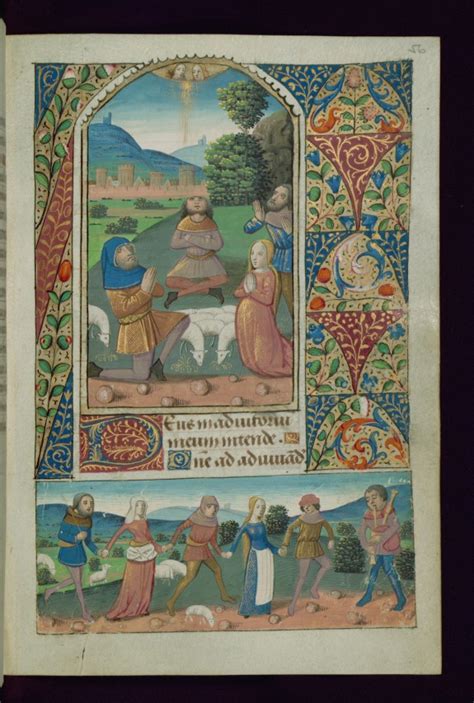 56
Deus in adiutoriū
meum intende.
Dne ad adiuuād